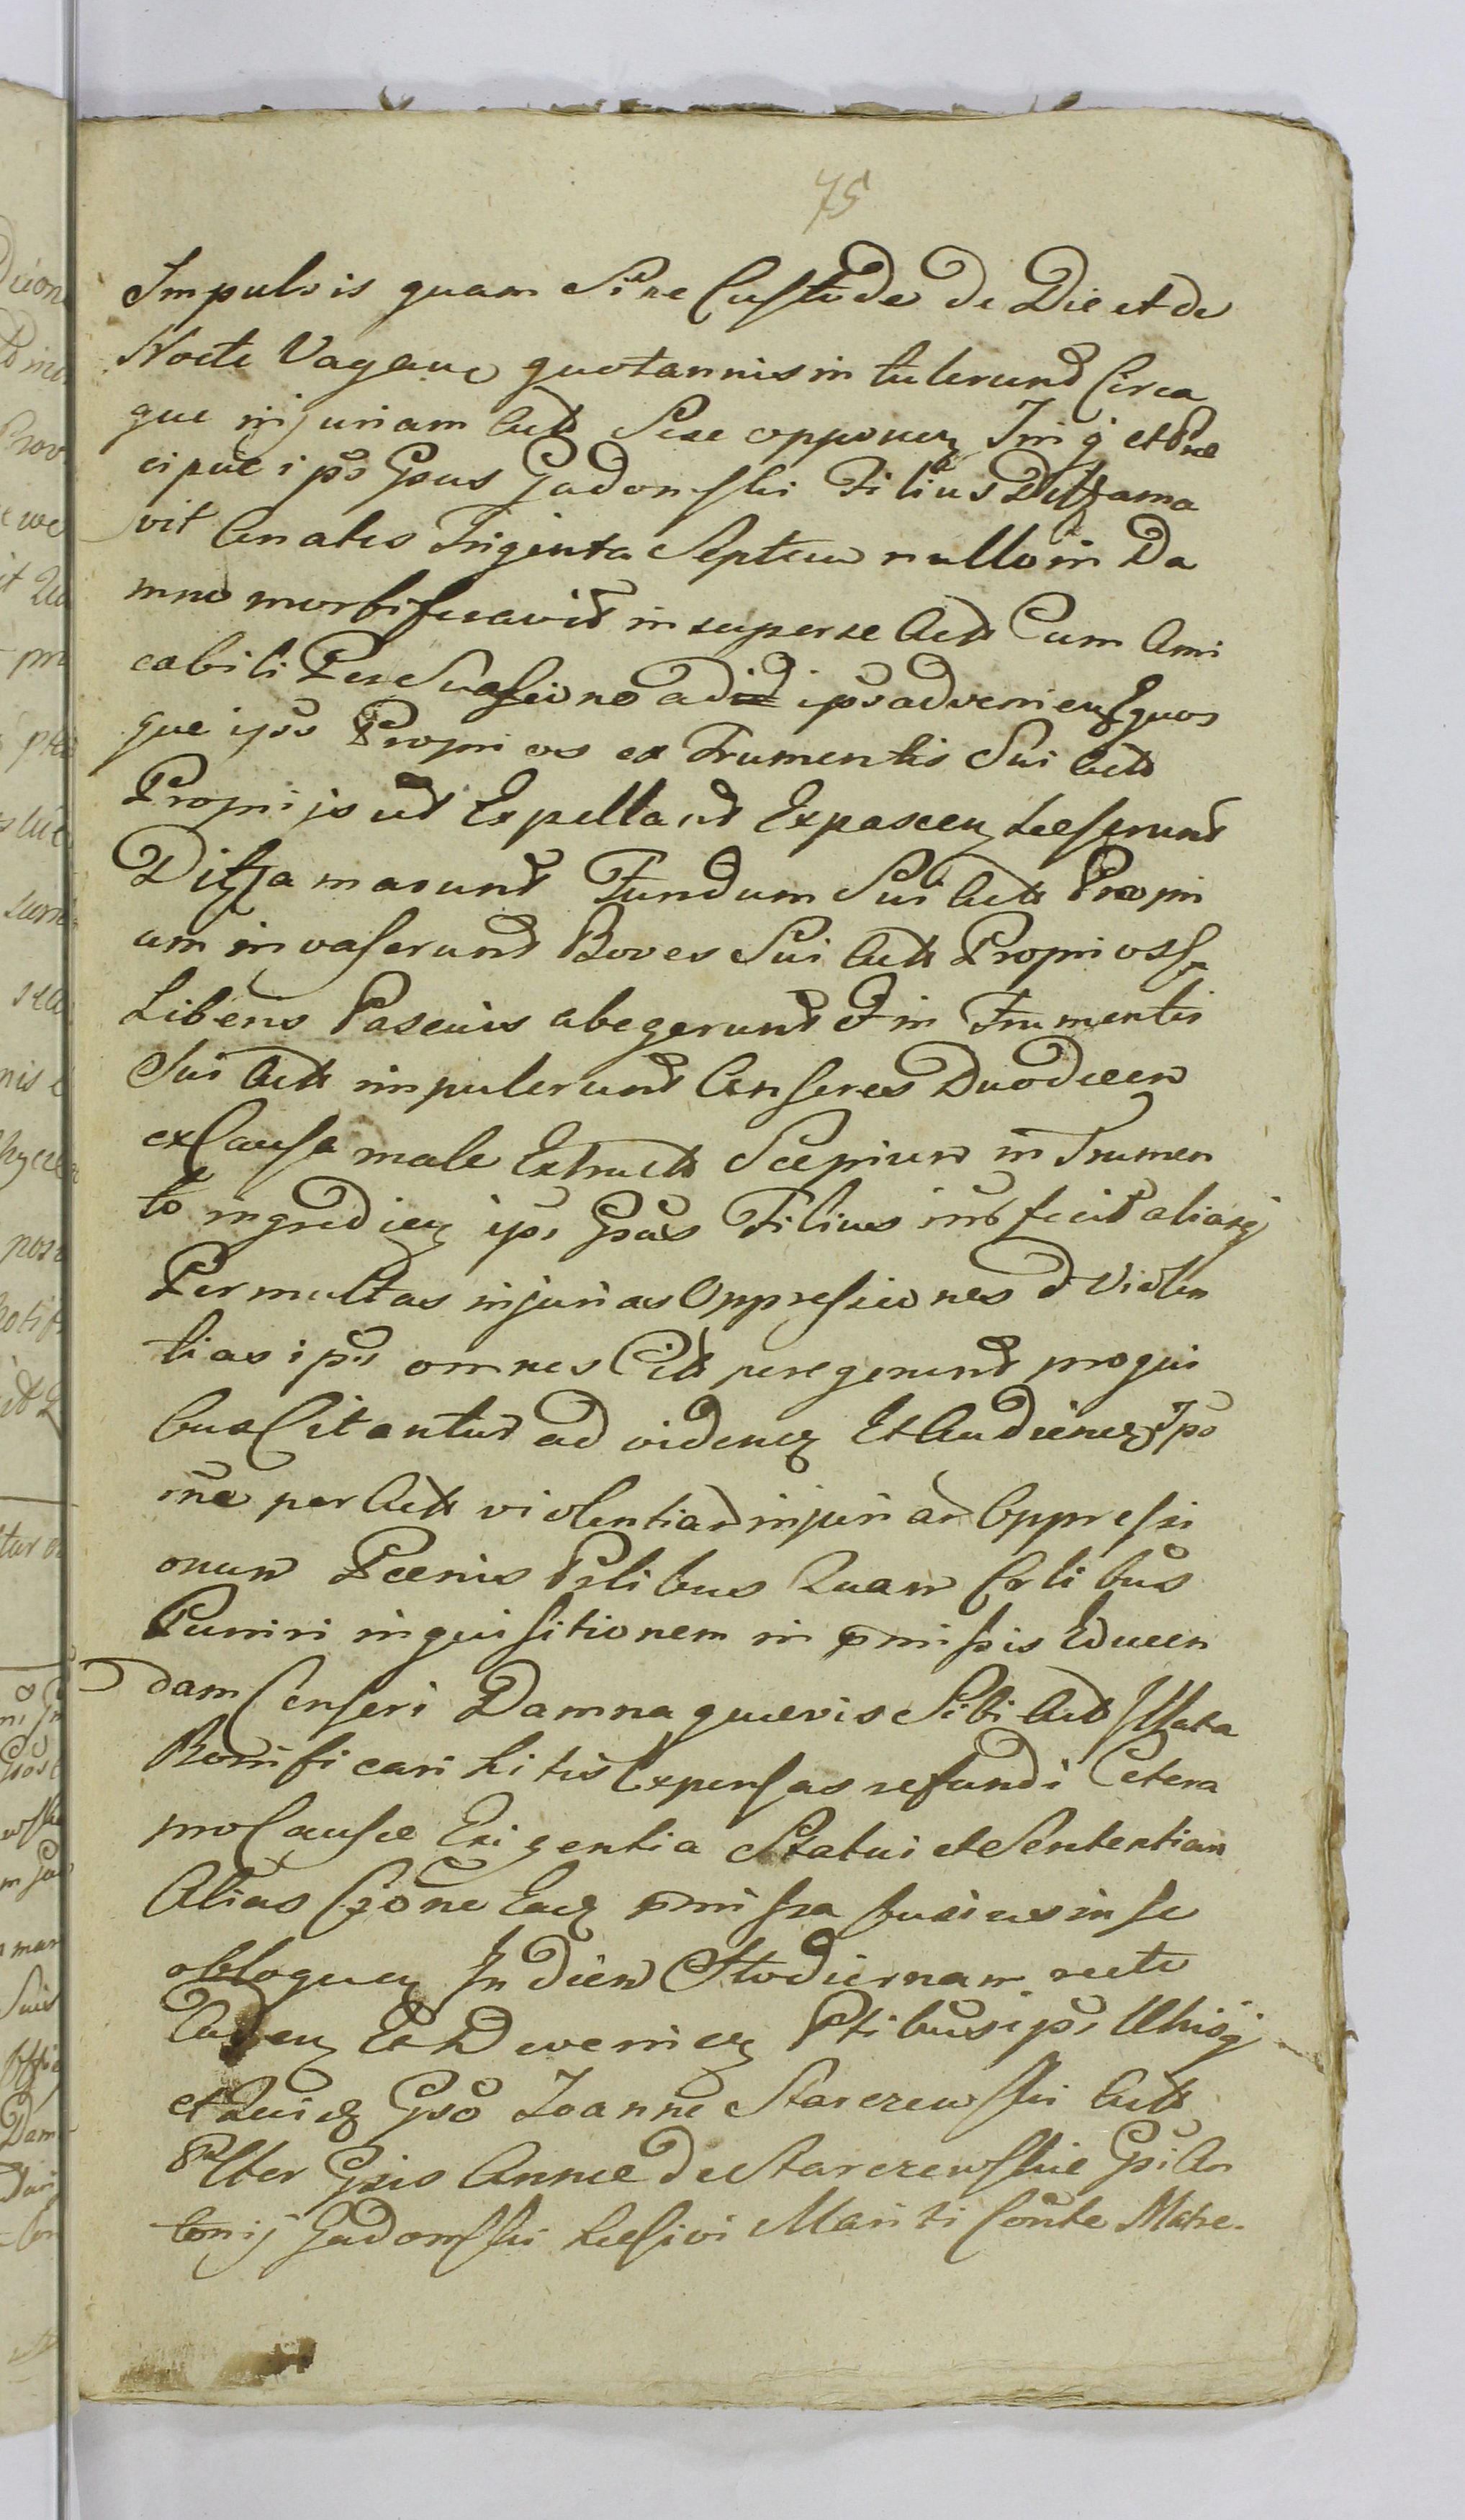 75
Impulsis quam Sine Custode de Die et de
Nocte Vagans quotannis in tulerund Circa
que injuriam Actt Sese opponen Jniq et Præ
cipue ipso Gsus Gadomski Filius Ditffama
vit Anates Triginta Septem nullo in Da
mno morbiferavit in super se Actt Cum Ami
cabili Per Suasione ad id ipso advenien Equos
que ipso Proprios ex Frumentis Sui Actt
Proprijs ut Expelland Expascen Læserunt
Ditffamarunt Fundum Sui Actt Propri
um invaserunt Boves Sui Actt Proprios
Liberis Pascuis abegerunt et in Frumentis
Sui Actt impulerunt Anseres Duodecem
ex Causa male Extructt Scepium in Frumen
to ingredien ips Gsus Filius intfecit aliasq
Permultas injurias Oppressiones et Violen
tias ipsi omnes Citt peregerunt pro qui
bus Citantur ad videnq Et Audienq Ipo
rne per Actt violentiar injuriar Oppressi
onum Pœnis Pslibus Quam Crlibus
Puniri inquisitionem in pmissis Educen
dam Censeri Damna quævis Sibi Actt Illata
Bonificari Litis Expensas refundi Cetera
pro Causæ Exigentia Statui et Sententiari
Alias Cjone Eaq pmissa fusius in se
obloquen In diem Hodiernam recte
Caden Et Deveniens Ptibus ips Utrisq
et Quidq Gso Joanne Starczewski Actt
Pltter Gsis Annæ de Starczewskie Gsi An
tonij Gadomski Læsivi Mariti Conte Matre.